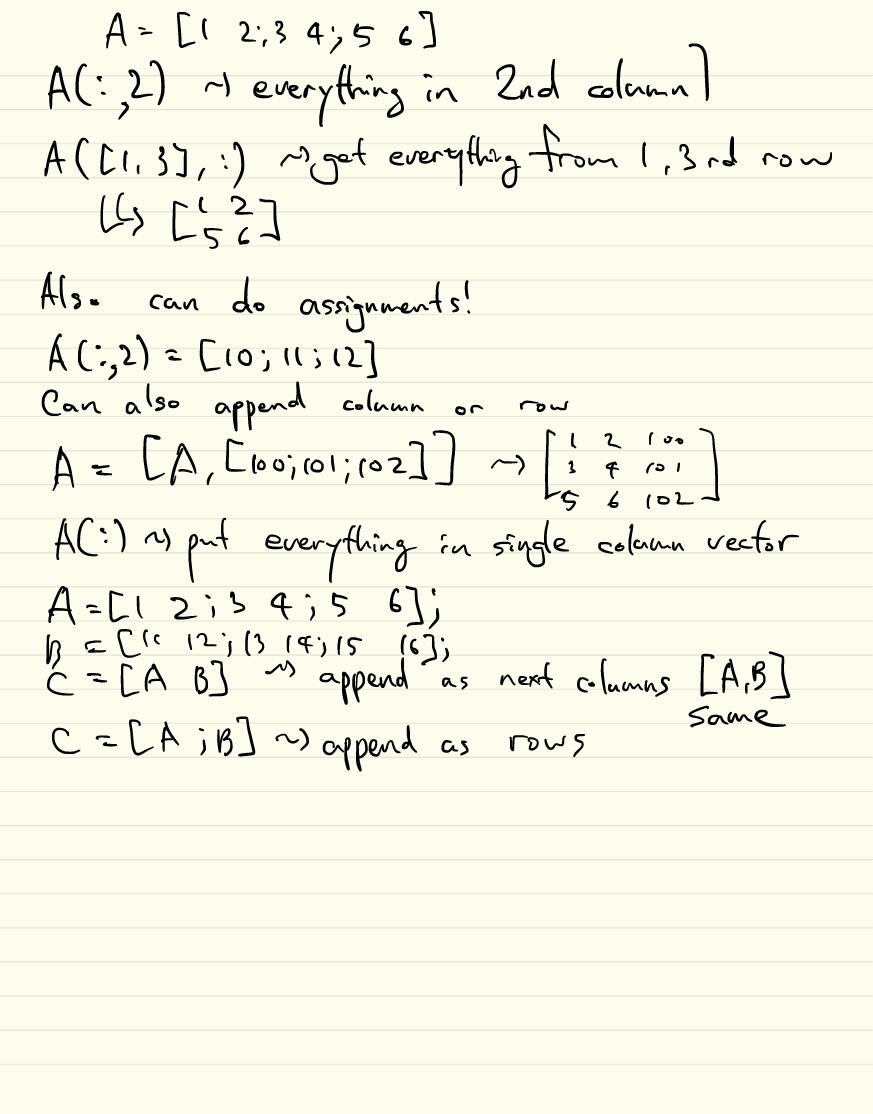 A = [1 2;3 4;5 6]
A(:,2) ~> everything in 2nd column]
A([1,3],:) ~> get everything from 1,3rd row
↳ [1 2
5 6]
Also can do assignments!
A(:,2) = [10;11;12]
Can also append column or row
A = [A,[100;101;102]] ~> [1 2 100
3 4 101
5 6 102]
A(:) ~> put everything in single column vector
A=[1 2;3 4;5 6];
B = [ 12;13 14;15 16];
C = [A B] ~> append as next columns [A,B]
same
C = [A ;B] ~> append as rows